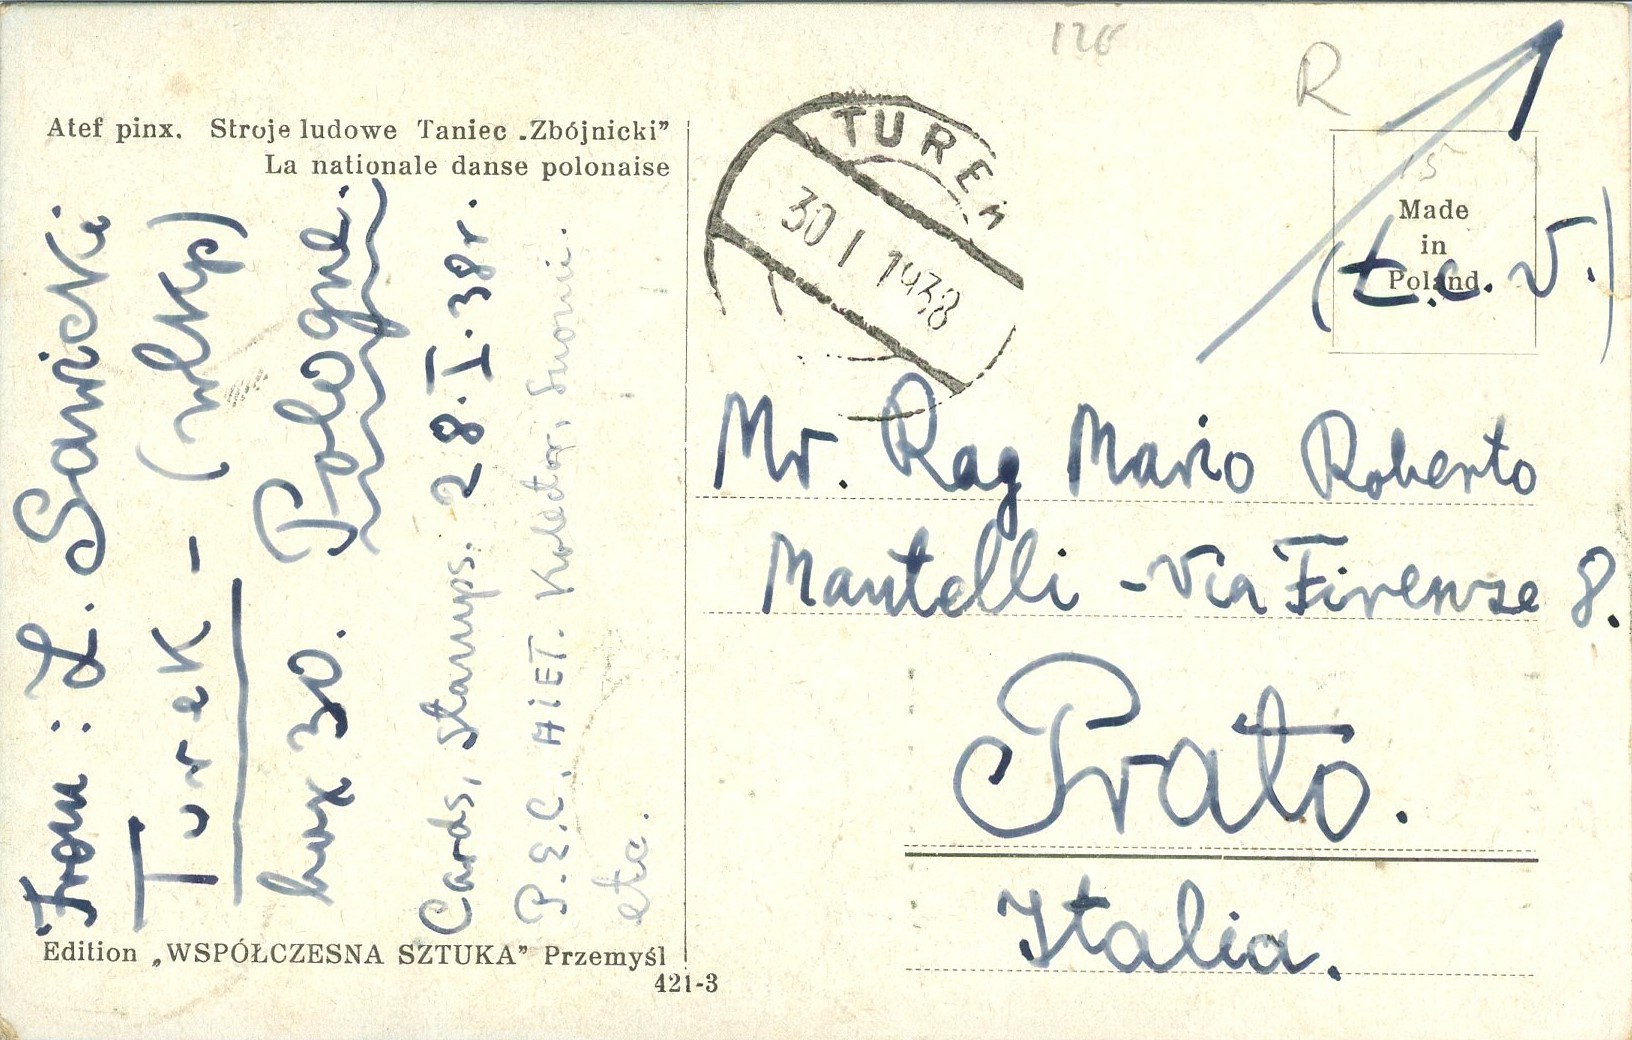 Atef pinx. Stroje ludowe Taniec „Zbójnicki”
La nationale danse polonaise
From: L. Sawicki
Turek – (wlkp)
box 30. Pologne.
Cards, stamps. 28.I.38r.
P.E.C.
etc.
Edition „WSPÓŁCZESNA SZTUKA” Przemyśl
421-3
TUREK
30 I 1938
R
Made
in
Poland
(t.c.v.)
Mr. Rag Mario Roberto
Mantelli – Via Firenze 8.
Prato.
Italia.